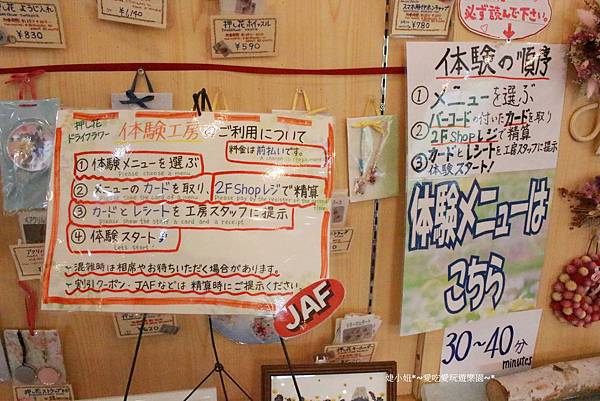 押し花 ようじ入れ
¥830
¥1,140
押し花ホイッスル
¥590
¥780
必ず読んで下さい。
押し花
ドライフラワー
体験工房のご利用について
料金は前払いです。
A charge is prepayment.
①体験メニューを選ぶ
Please choose a menu.
②メニューのカードを取り、2F Shopレジで精算
Please take the card of a menu. Please pay by the register of the
③カードとレシートを工房スタッフに提示
Please show the staff a card and a receipt.
④体験スタート♪
Let's start!
~混雑時は相席やお待ちいただく場合があります。
~割引クーポン・JAFなどは精算時にご提示ください。
JAF
体験の順序
①メニューを選ぶ
②バーコードの付いたカードを取り
2F Shopレジで精算
③カードとレシートを工房スタッフに提示
体験スタート!
体験メニューは
こちら
30~40分
minutes
婕小姐*~愛吃愛玩遊樂園~*